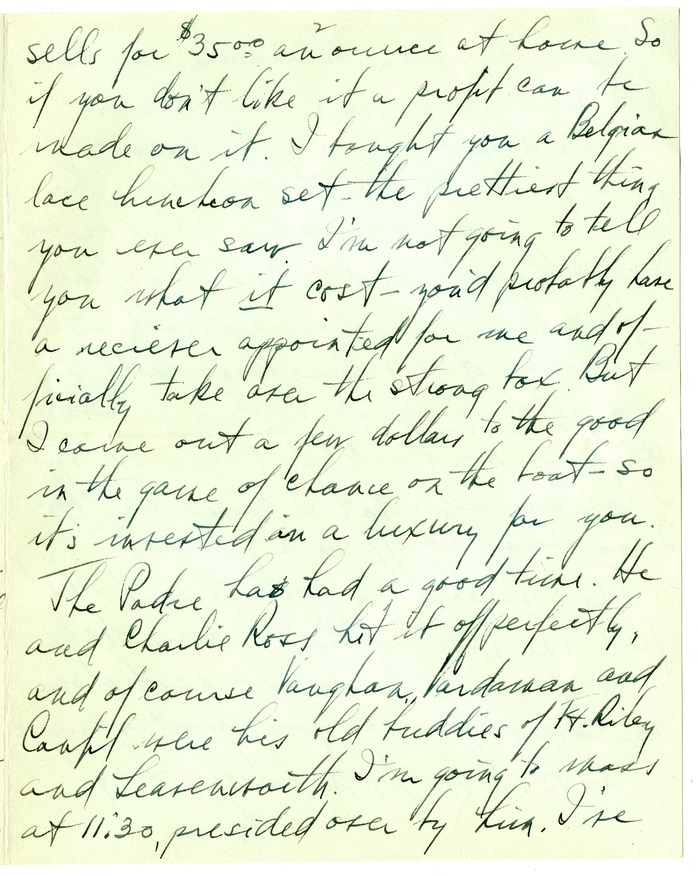 sells for $35.00 an ounce at home. So
if you don't like it a profit can be
made on it. I bought you a Belgian
lace luncheon set - the prettiest thing
you ever saw. I'm not going to tell
you what it cost - you'd probably have
a reciever appointed for me and of-
ficially take over the strong box. But
I came out a few dollars to the good
in the game of chance on the boat - so
it's invested in a luxury for you.
The Padre has had a good time. He
and Charlie Ross hit it off perfectly,
and of course Vaughan, Vardaman and
Canfil were his old buddies of Ft. Riley
and Leavenworth. I'm going to mass
at 11:30, presided over by him. I've